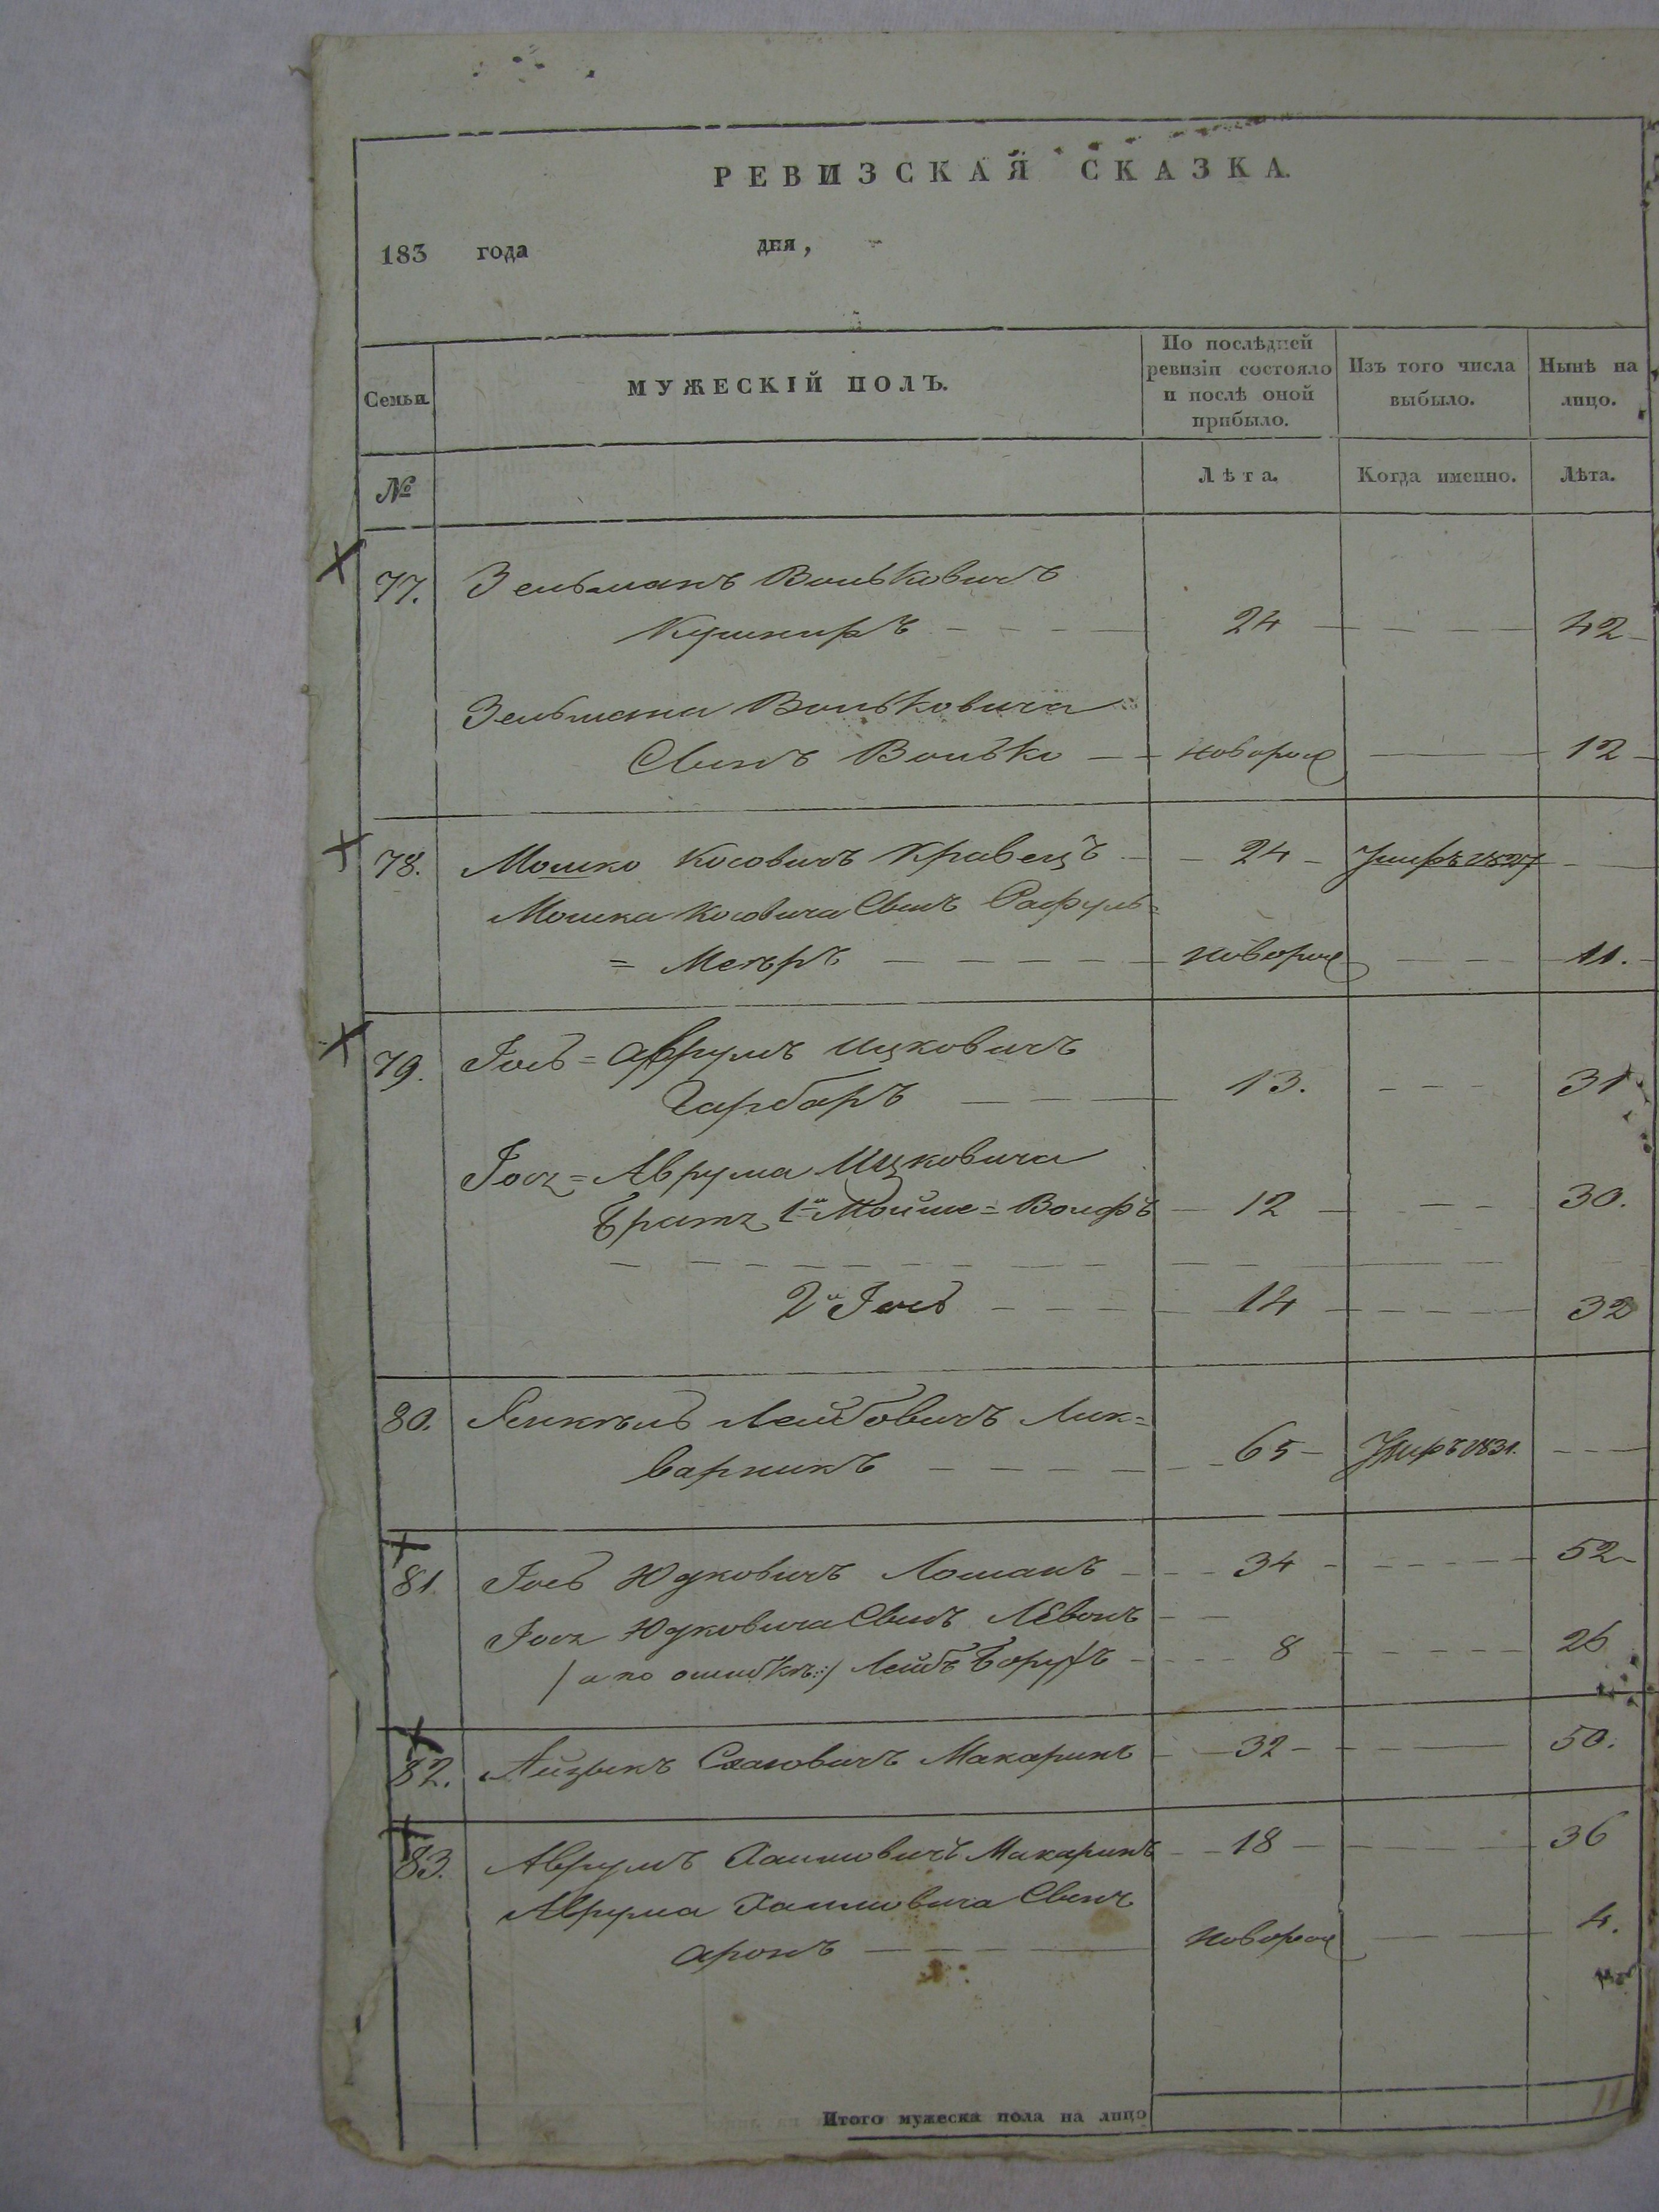 РЕВИЗСКАЯ СКАЗКА.
183 года дня,
Семьи. МУЖЕСКІЙ ПОЛЪ. По послѣдней ревизіи состояло и послѣ оной прибыло. Изъ того числа выбыло. Нынѣ на лицо.
№ Лѣта. Когда именно. Лѣта.
77. Зельманъ Вольковичъ
Кушниръ 24 42
Зельмана Вольковича
Сынъ Волько новорож 12
78. Мошко Косовичъ Кравецъ 24 Умиръ 1827
Мошка Косовича Сынъ Рафуль=
= Меэръ новорож 11.
79. Іось=Аврумъ Ицковичъ
Гарбаръ 13. 31
Іося=Аврума Ицковича
Братъ 1й Мойше=Вольфъ 12 30.
2й Іось 14 32
80. Янкель Лейбовичъ Лик=
варникъ 65 Умиръ 1831.
81. Іось Юдковичъ Лошакъ 34 52
Іося Юдковича Сынъ
/а по ошибкѣ:/ Лейбъ Борухъ 8 26
82. Айзыкъ Макаринъ 32 50.
83. Аврумъ Хаимовичъ Макаринъ 18 36
Аврума Хаимовича Сынъ
Аронъ новорож 4.
Итого мужеска пола на лицо 11